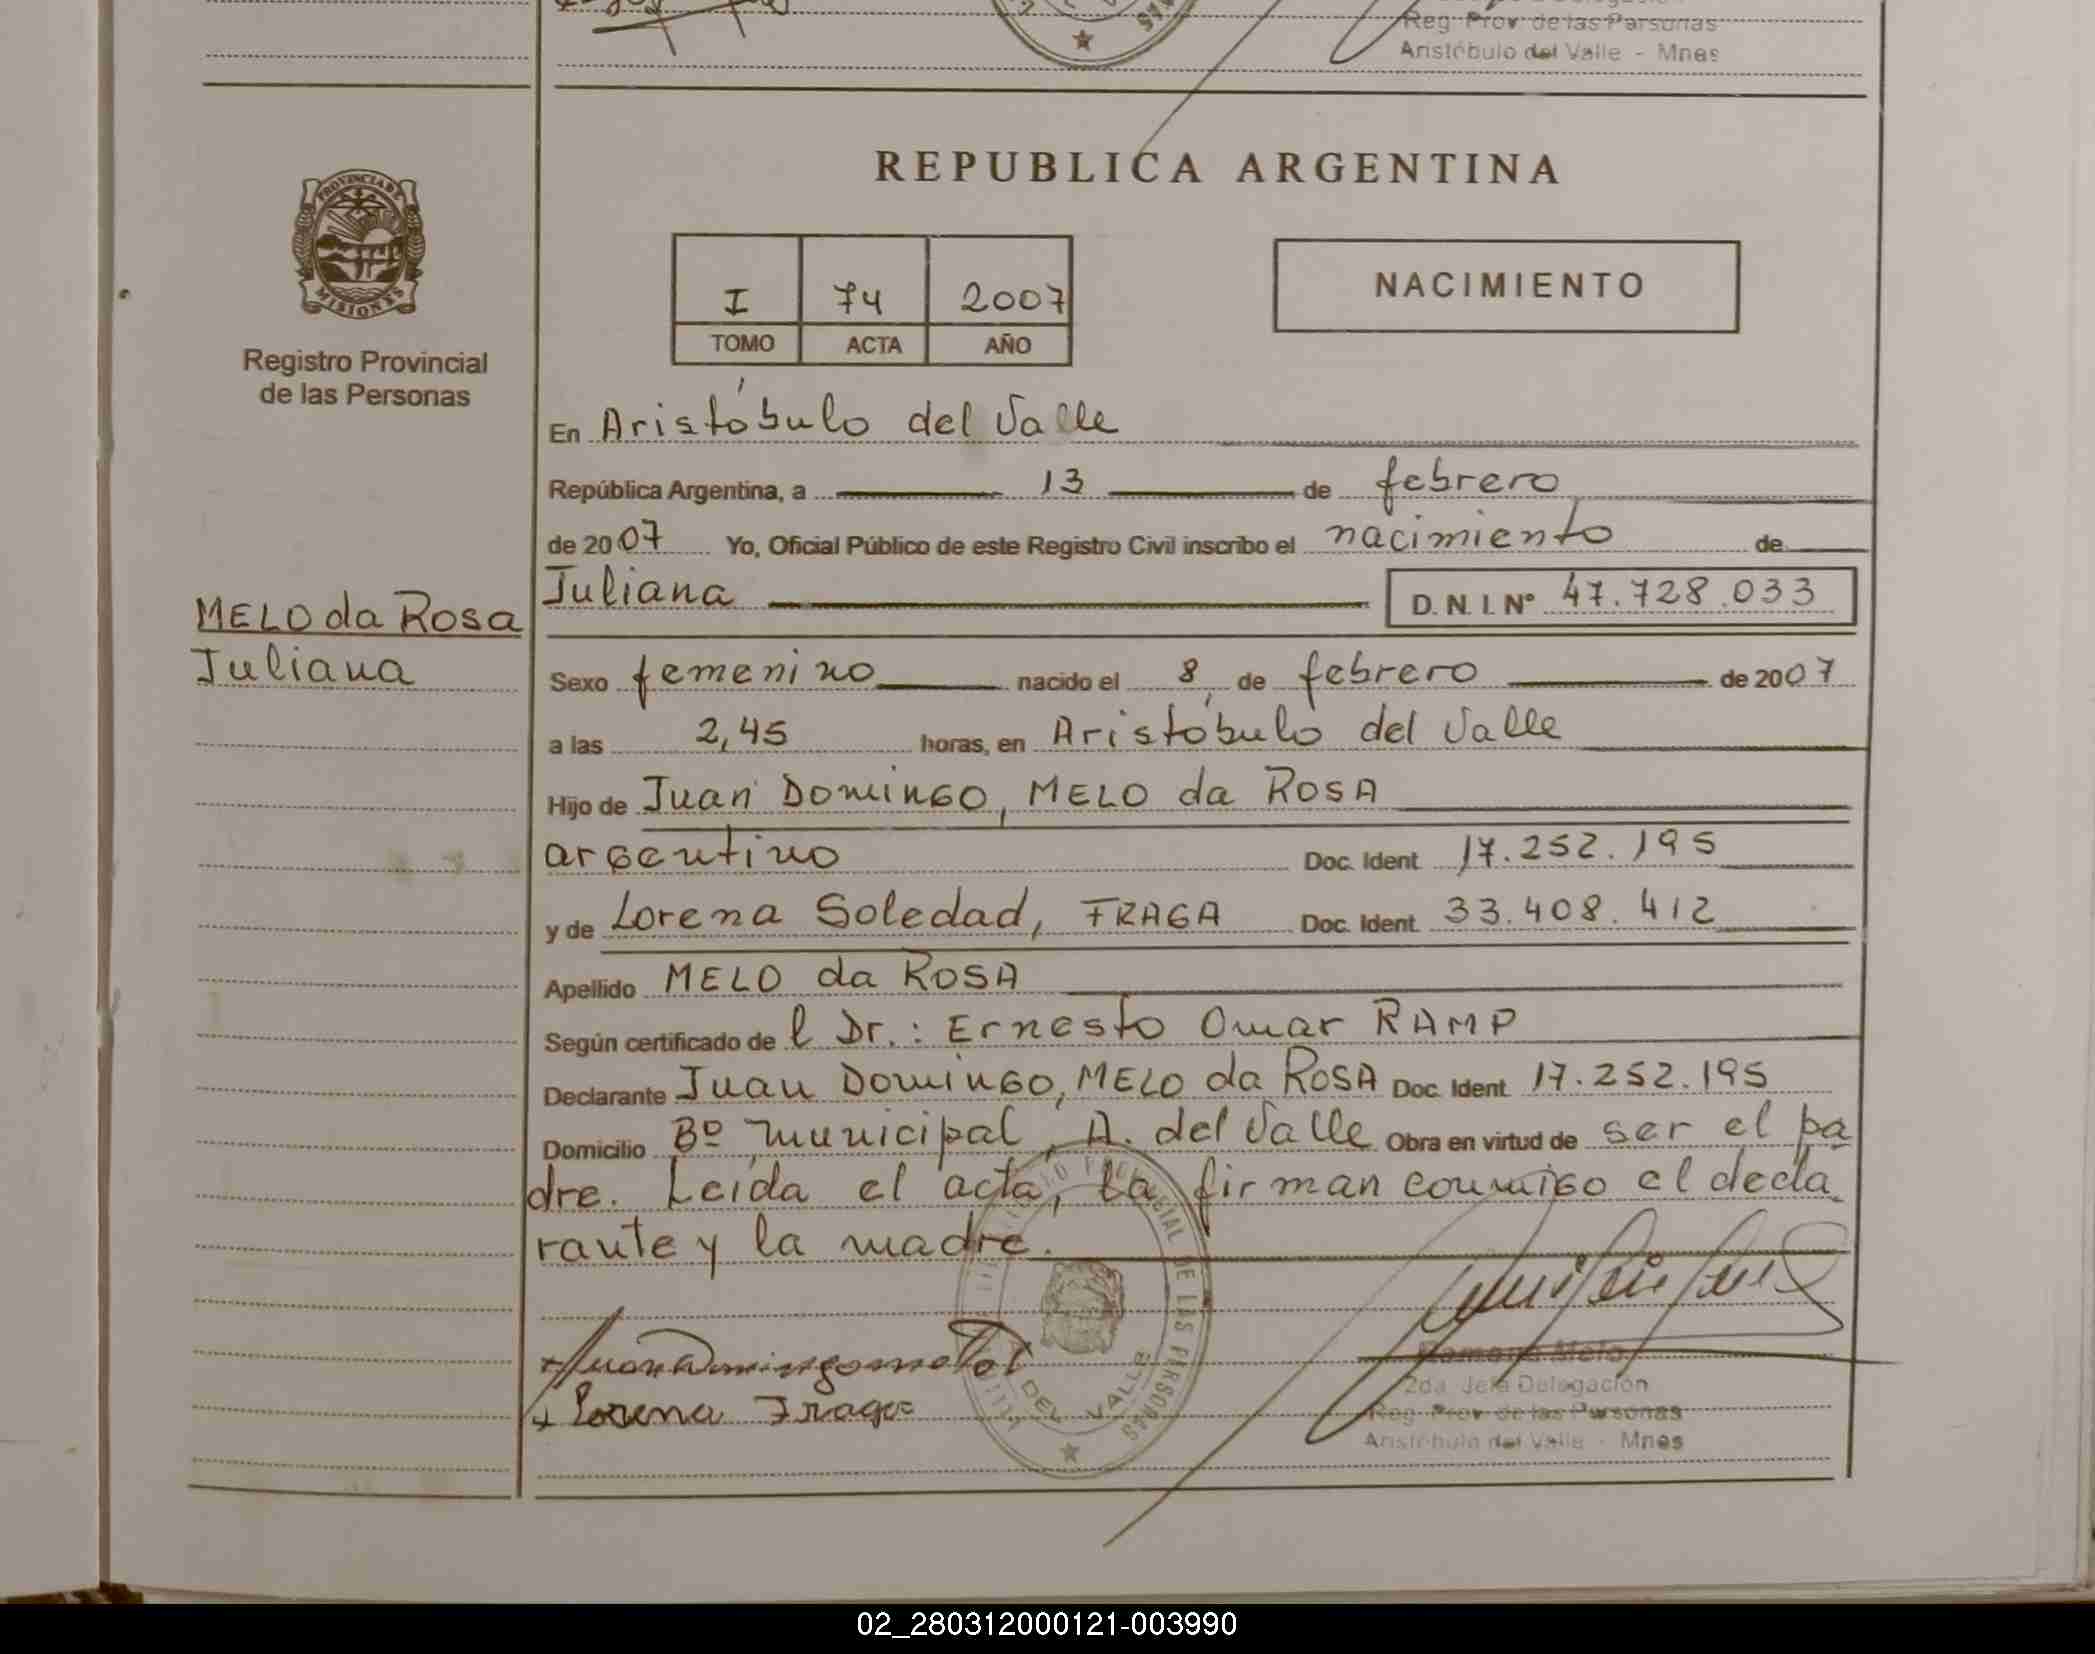 Reg. Prov. de las Personas
Aristóbulo del Valle - Mnes
PROVINCIA DE
MISIONES
Registro Provincial
de las Personas
REPUBLICA ARGENTINA
I 74 2007
TOMO ACTA AÑO
NACIMIENTO
En Aristóbulo del Valle
República Argentina, a 13 de febrero
de 2007 Yo, Oficial Público de este Registro Civil inscribo el nacimiento de
MELO da Rosa
Juliana
Juliana D.N.I.Nº 47.728.033
Sexo femenino nacido el 8 de febrero de 2007
a las 2,45 horas, en Aristóbulo del Valle
Hijo de Juan Domingo, MELO da ROSA
argentino Doc. Ident. 17.252.195
y de Lorena Soledad, FRAGA Doc. Ident. 33.408.412
Apellido MELO da ROSA
Según certificado de l Dr.: Ernesto Omar RAMP
Declarante Juan Domingo, MELO da ROSA Doc. Ident. 17.252.195
Domicilio Bº Municipal, A. del Valle Obra en virtud de ser el pa
dre. Leída el acta, la firman conmigo el decla
rante y la madre.
DEL VALLE
DE LAS PERSONAS
Juan Domingo melo
Lorena Fraga
Ramona Melo
2da. Jefa Delegación
Reg. Prov. de las Personas
Aristóbulo del Valle - Mnes
02_280312000121-003990